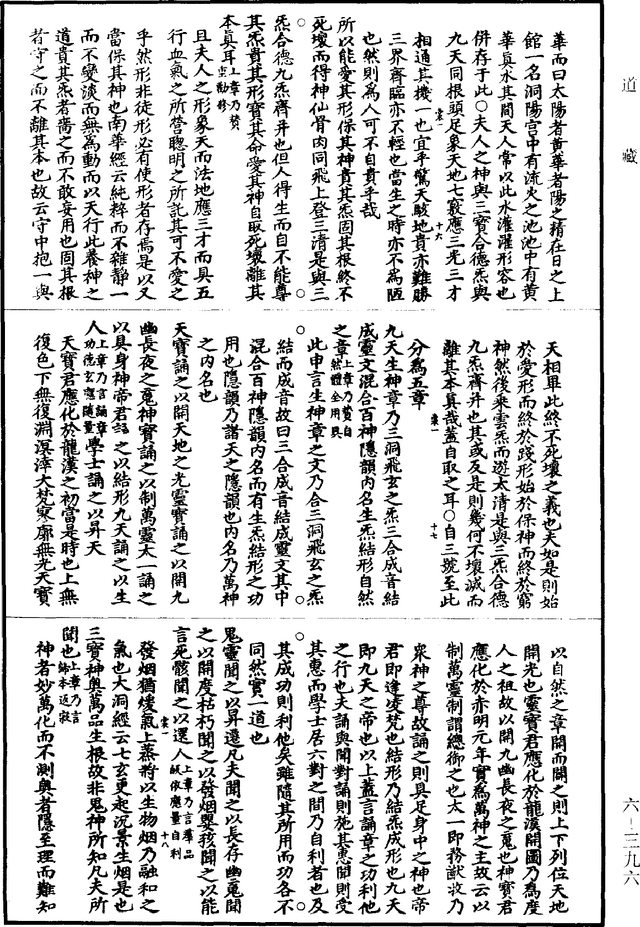 道藏
華而曰太陽者黃華者陽之精在日之上
館一名洞陽宫中有流火之池池中有黃
華真水其間天人常以此水灌濯形容也
併存于此○夫人之神與三寶合德炁與
九天同根頭足象天地七竅應三光三才
相通其機一也宜乎驚天駭地貴亦難勝
三界齊臨亦不輕也當生之時亦不爲陋
也然則爲人可不自貴乎哉
所以能愛其形保其神貴其炁固其根終不
死壞而得神仙骨肉同飛上登三清是與三
炁合德九炁齊并也但人得生而自不能尊
其炁貴其形寶其命愛其神自取死壞離其
本真耳上章乃贊重勸修
且夫人之形象天而法地應三才而具五
行血氣之所營聰明之所託其可不愛之
乎然形非徒形必有使形者存焉是以又
當保其神也南華經云純粹而不雜靜一
而不變淡而無爲動而以天行此養神之
道貴其炁者嗇之而不敢妄用也固其根
者守之而不離其本也故云守中抱一與
天相畢此終不死壞之義也夫如是則始
於愛形而終於踐形始於保神而終於窮
神然後乘雲炁而遊太清是與三炁合德
九炁齊并也其或反是則幾何不壞滅而
離其本真哉蓋自取之耳○自三號至此
分爲五章
九天生神章乃三洞飛玄之炁三合成音結
成靈文混合百神隱韻内名生炁結形自然
之章上章乃贊自然體全用具
此申言生神章之文乃合三洞飛玄之炁
結而成音故曰三合成音結成靈文其中
混合百神隱韻内名而有生炁結形之功
用也隱韻乃諸天之隱韻也内名乃萬神
之内名也
天寶誦之以開天地之光靈寶誦之以開九
幽長夜之䰟神寶誦之以制萬靈太一誦之
以具身神帝君誦之以結形九天誦之以生
人上章乃言誦章功德玄應隨量學士誦之以昇天
天寶君應化於龍漢之初當是時也上無
復色下無復淵溟涬大梵寥廓無光天寶
以自然之章開而開之則上下列位天地
開光也靈寶君應化於龍漢開圖乃爲度
人之祖故以開九幽長夜之䰟也神寶君
應化於赤明元年實爲萬神之主故云以
制萬靈制謂總御之也太一即務猷收乃
衆神之尊故誦之則具足身中之神也帝
君即逮凌梵也結形乃結炁成形也九天
即九天之帝也以上蓋言誦章之功利他
之行也夫誦與聞對誦則施其惠聞則受
其惠而學士居六對之間乃自利者也及
其成功則利他矣雖隨其所用而功各不
同然實一道也
鬼靈聞之以昇遷凡夫聞之以長存幽䰟聞
之以開度枯朽聞之以發烟嬰孩聞之以能
言死骸聞之以還人上章乃言羣品皈依應量自利
發烟猶煖氣上蒸將以生物烟乃融和之
氣也大洞經云七玄更起沉景生烟是也
三寶神奥萬品生根故非鬼神所知凡夫所
聞也上章乃言歸本返寂
神者妙萬化而不測奥者隱至理而難知
六－三九六